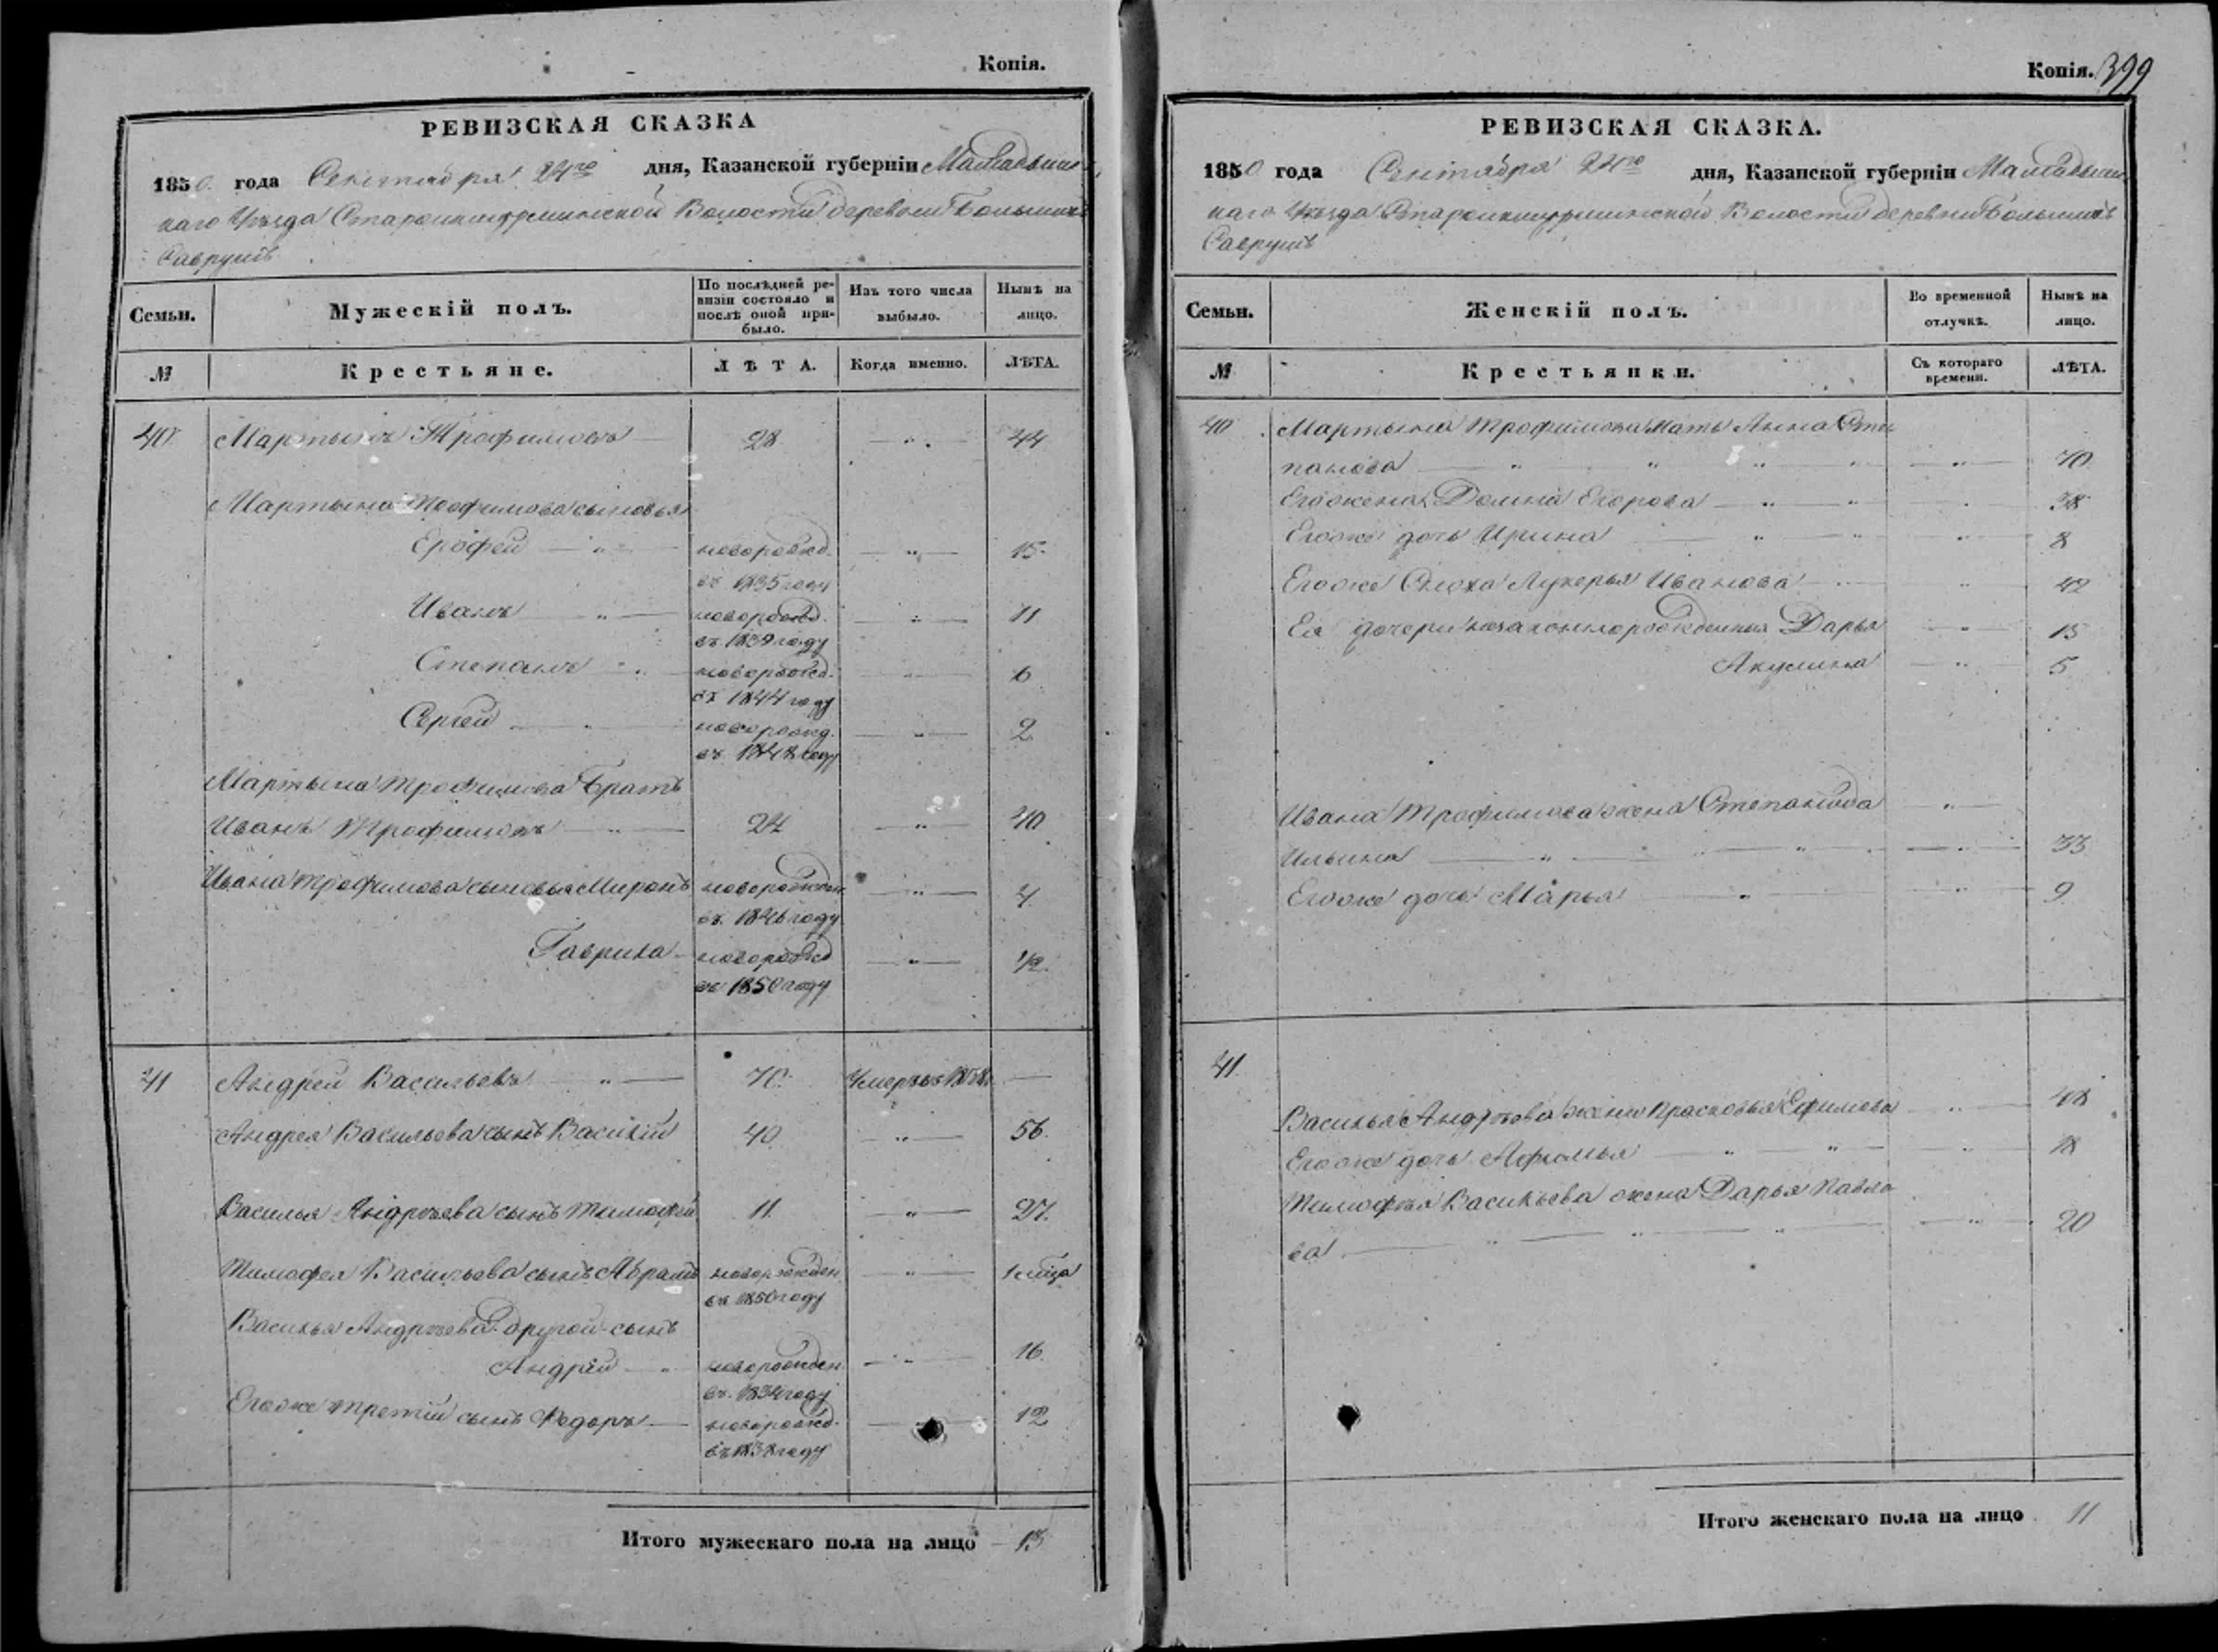 Копія.
РЕВИЗСКАЯ СКАЗКА
1850 года Сентября 24го дня, Казанской губерніи Мамадыш
скаго Уѣзда Волости деревни Большихъ
Саврушъ
Семьи.
Мужескій полъ.
По послѣдней ре-
визіи состояло и
послѣ оной при-
было.
Изъ того числа
выбыло.
Нынѣ на
лицо.
№
Крестьяне.
ЛѢТА.
Когда именно.
ЛѢТА.
40 Мартынъ Трофимовъ 28 44
Мартына Трофимова сыновья
Ерофей новорожд. 15
въ 1835 году
Иванъ новорожд. 11
въ 1839 году
Степанъ новорожд. 6
въ 1844 году
Сергей новорожд. 2
въ 1848 году
Мартына Трофимова Братъ
Иванъ Трофимовъ 24 40
Ивана Трофимова сыновья Миронъ новорожден. 4
въ 1846 году
Гаврила новорожд 1/2
въ 1850 году
41 Андрей Васильевъ 70 Умеръ въ
Андрея Васильева сынъ Василій 40 56
Василья Андрѣева сынъ Тимофей 11 27
Тимофея Васильева сынъ Абрамъ новорожден
въ 1850 году
Василья Андрѣева другой сынъ
Андрей новорожден 16
въ 1834 году
Егоже третій сынъ Федоръ новорожд. 12
въ 1838 году
Итого мужескаго пола на лицо 13
Копія. 399
РЕВИЗСКАЯ СКАЗКА.
1850 года Сентября 24го дня, Казанской губерніи Мамадыш
скаго Уѣзда Волости деревни Большихъ
Саврушъ
Семьи.
Женскій полъ.
Во временной
отлучкѣ.
Нынѣ на
лицо.
№
Крестьянки.
Съ котораго
времени.
ЛѢТА.
40 Мартына Трофимова Мать Анна Сте
панова 70
Егожена Егорова 38
Егоже дочь Ирина 8
Егоже Сноха Лукерья Иванова 42
Ея дочери незаконнорожденныя Дарья 15
Акулина 5
Ивана Трофимова жена Степанида
Ильина 33
Егоже дочь Марья 9
41
Василья Андрѣева жена Прасковья Ефимова 48
Егоже дочь Афимья 18
Тимофѣя Васильева жена Дарья Павло
ва 20
Итого женскаго пола на лицо 11